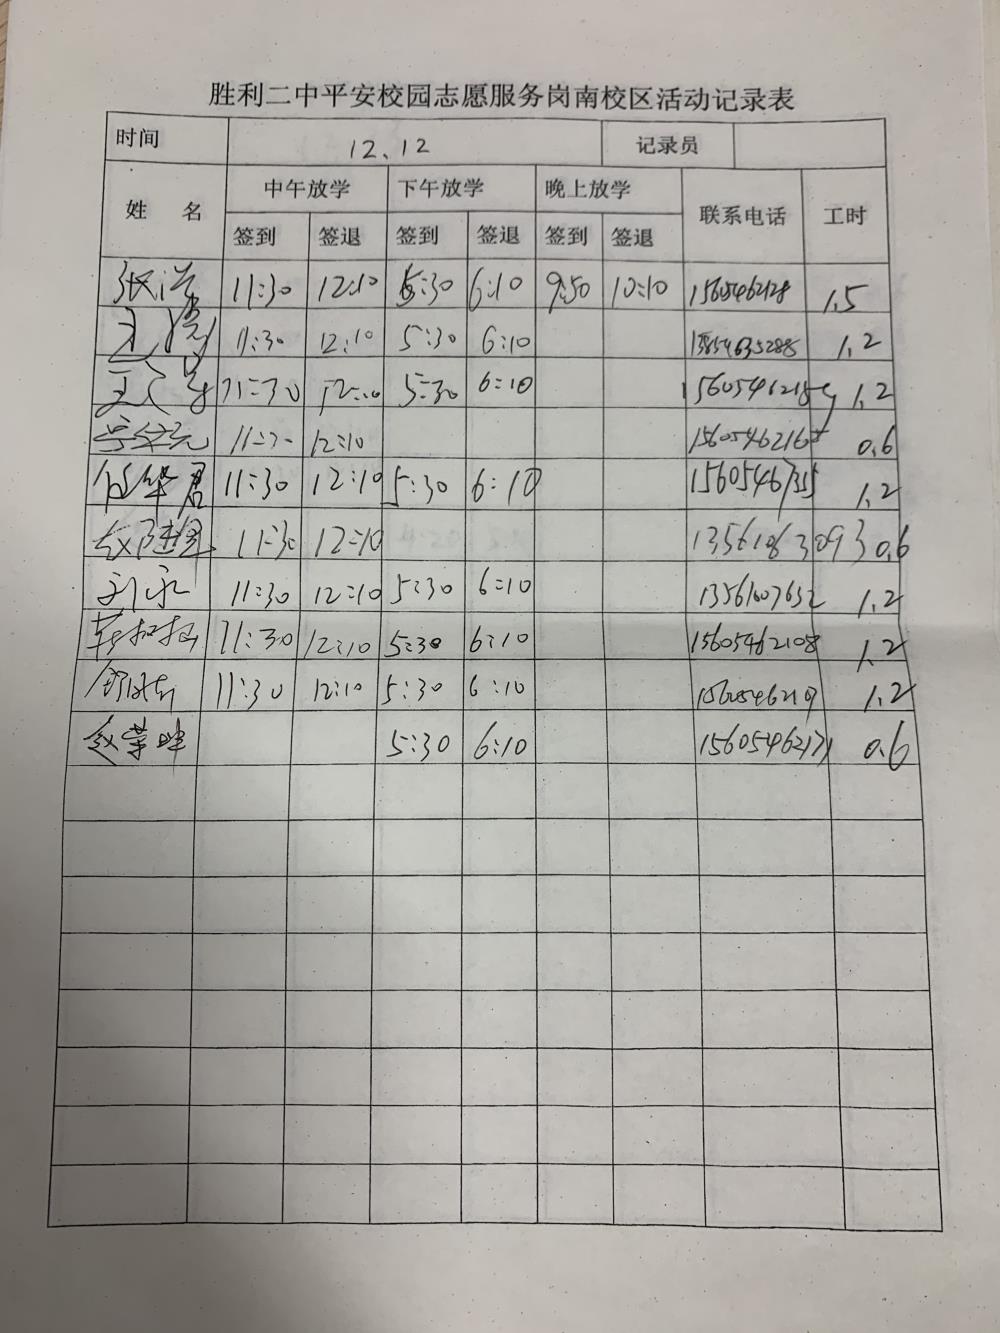 胜利二中平安校园志愿服务岗南校区活动记录表
时间 12、12 记录员
姓 名 中午放学 下午放学 晚上放学 联系电话 工时
签到 签退 签到 签退 签到 签退
11:30 12:10 5:30 6:10 9:50 10:10 15605462128 1.5
11:30 12:10 5:30 6:10 1.2
11:30 12:10 5:30 6:10 1.2
12:10 0.6
任华君 11:30 12:10 5:30 6:10 1.2
11:30 12:10 13561863093 0.6
刘永 11:30 12:10 5:30 6:10 13561607632 1.2
11:30 12:10 5:30 6:10 15605462108 1.2
11:30 12:10 5:30 6:10 1.2
赵荣峰 5:30 6:10 15605462171 0.6